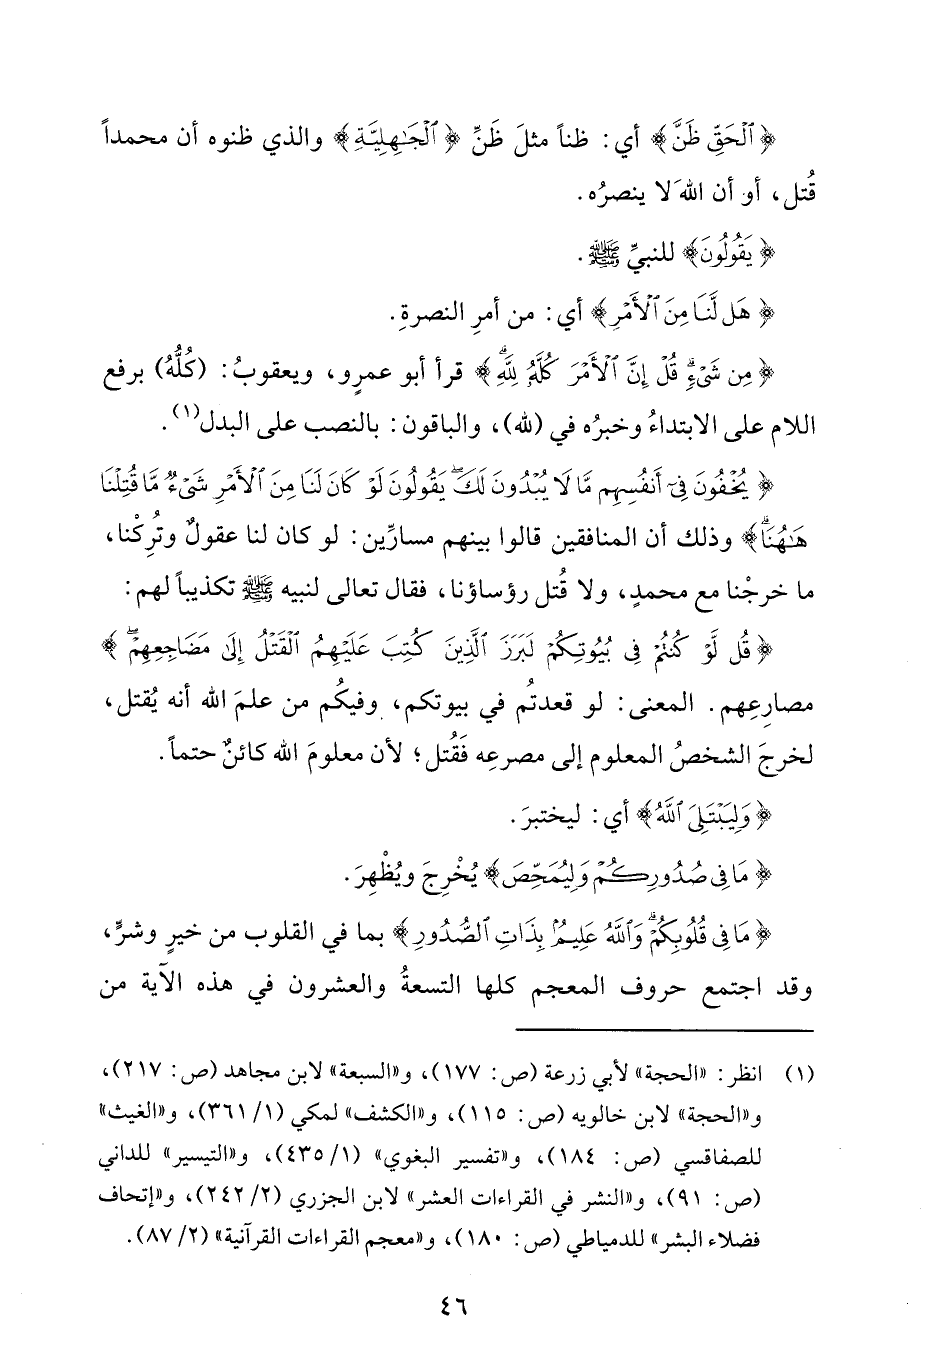 ﴿ ٱلْحَقِّ ظَنَّ ﴾ أي: ظناً مثلَ ظَنِّ ﴿ ٱلْجَٰهِلِيَّةِ ﴾ والذي ظنوه أن محمداً
قُتل، أو أن اللهَ لا ينصرُه.
﴿ يَقُولُونَ ﴾ للنبيِّ ﷺ.
﴿ هَل لَّنَا مِنَ ٱلْأَمْرِ ﴾ أي: من أمرِ النصرةِ.
﴿ مِن شَىْءٍۗ قُلْ إِنَّ ٱلْأَمْرَ كُلَّهُۥ لِلَّهِۗ ﴾ قرأ أبو عمرٍو، ويعقوبُ: (كُلُّهُ) برفع
اللام على الابتداءُ وخبرُه في (لله)، والباقون: بالنصب على البدل(١).
﴿ يُخْفُونَ فِىٓ أَنفُسِهِم مَّا لَا يُبْدُونَ لَكَۖ يَقُولُونَ لَوْ كَانَ لَنَا مِنَ ٱلْأَمْرِ شَىْءٌ مَّا قُتِلْنَا
هَٰهُنَاۗ ﴾ وذلك أن المنافقين قالوا بينهم مسارِّين: لو كان لنا عقولٌ وتُرِكْنا،
ما خرجْنا مع محمدٍ، ولا قُتل رؤساؤنا، فقال تعالى لنبيه ﷺ تكذيباً لهم:
﴿ قُل لَّوْ كُنتُمْ فِى بُيُوتِكُمْ لَبَرَزَ ٱلَّذِينَ كُتِبَ عَلَيْهِمُ ٱلْقَتْلُ إِلَىٰ مَضَاجِعِهِمْۖ ﴾
مصارِعِهم. المعنى: لو قعدتُم في بيوتكم، وفيكُم من علمَ الله أنه يُقتل،
لخرجَ الشخصُ المعلوم إلى مصرعِه فَقُتل؛ لأن معلومَ الله كائنٌ حتماً.
﴿ وَلِيَبْتَلِىَ ٱللَّهُ ﴾ أي: ليختبرَ.
﴿ مَا فِى صُدُورِكُمْ وَلِيُمَحِّصَ ﴾ يُخْرِجَ ويُظْهِرَ.
﴿ مَا فِى قُلُوبِكُمْۗ وَٱللَّهُ عَلِيمٌۢ بِذَاتِ ٱلصُّدُورِ ﴾ بما في القلوب من خيرٍ وشرٍّ،
وقد اجتمع حروف المعجم كلها التسعةُ والعشرون في هذه الآية من
(١) انظر: «الحجة» لأبي زرعة (ص: ١٧٧)، و«السبعة» لابن مجاهد (ص: ٢١٧)،
و«الحجة» لابن خالويه (ص: ١١٥)، و«الكشف» لمكي (١/ ٣٦١)، و«الغيث»
للصفاقسي (ص: ١٨٤)، و«تفسير البغوي» (١/ ٤٣٥)، و«التيسير» للداني
(ص: ٩١)، و«النشر في القراءات العشر» لابن الجزري (٢/ ٢٤٢)، و«إتحاف
فضلاء البشر» للدمياطي (ص: ١٨٠)، و«معجم القراءات القرآنية» (٢/ ٨٧).
٤٦